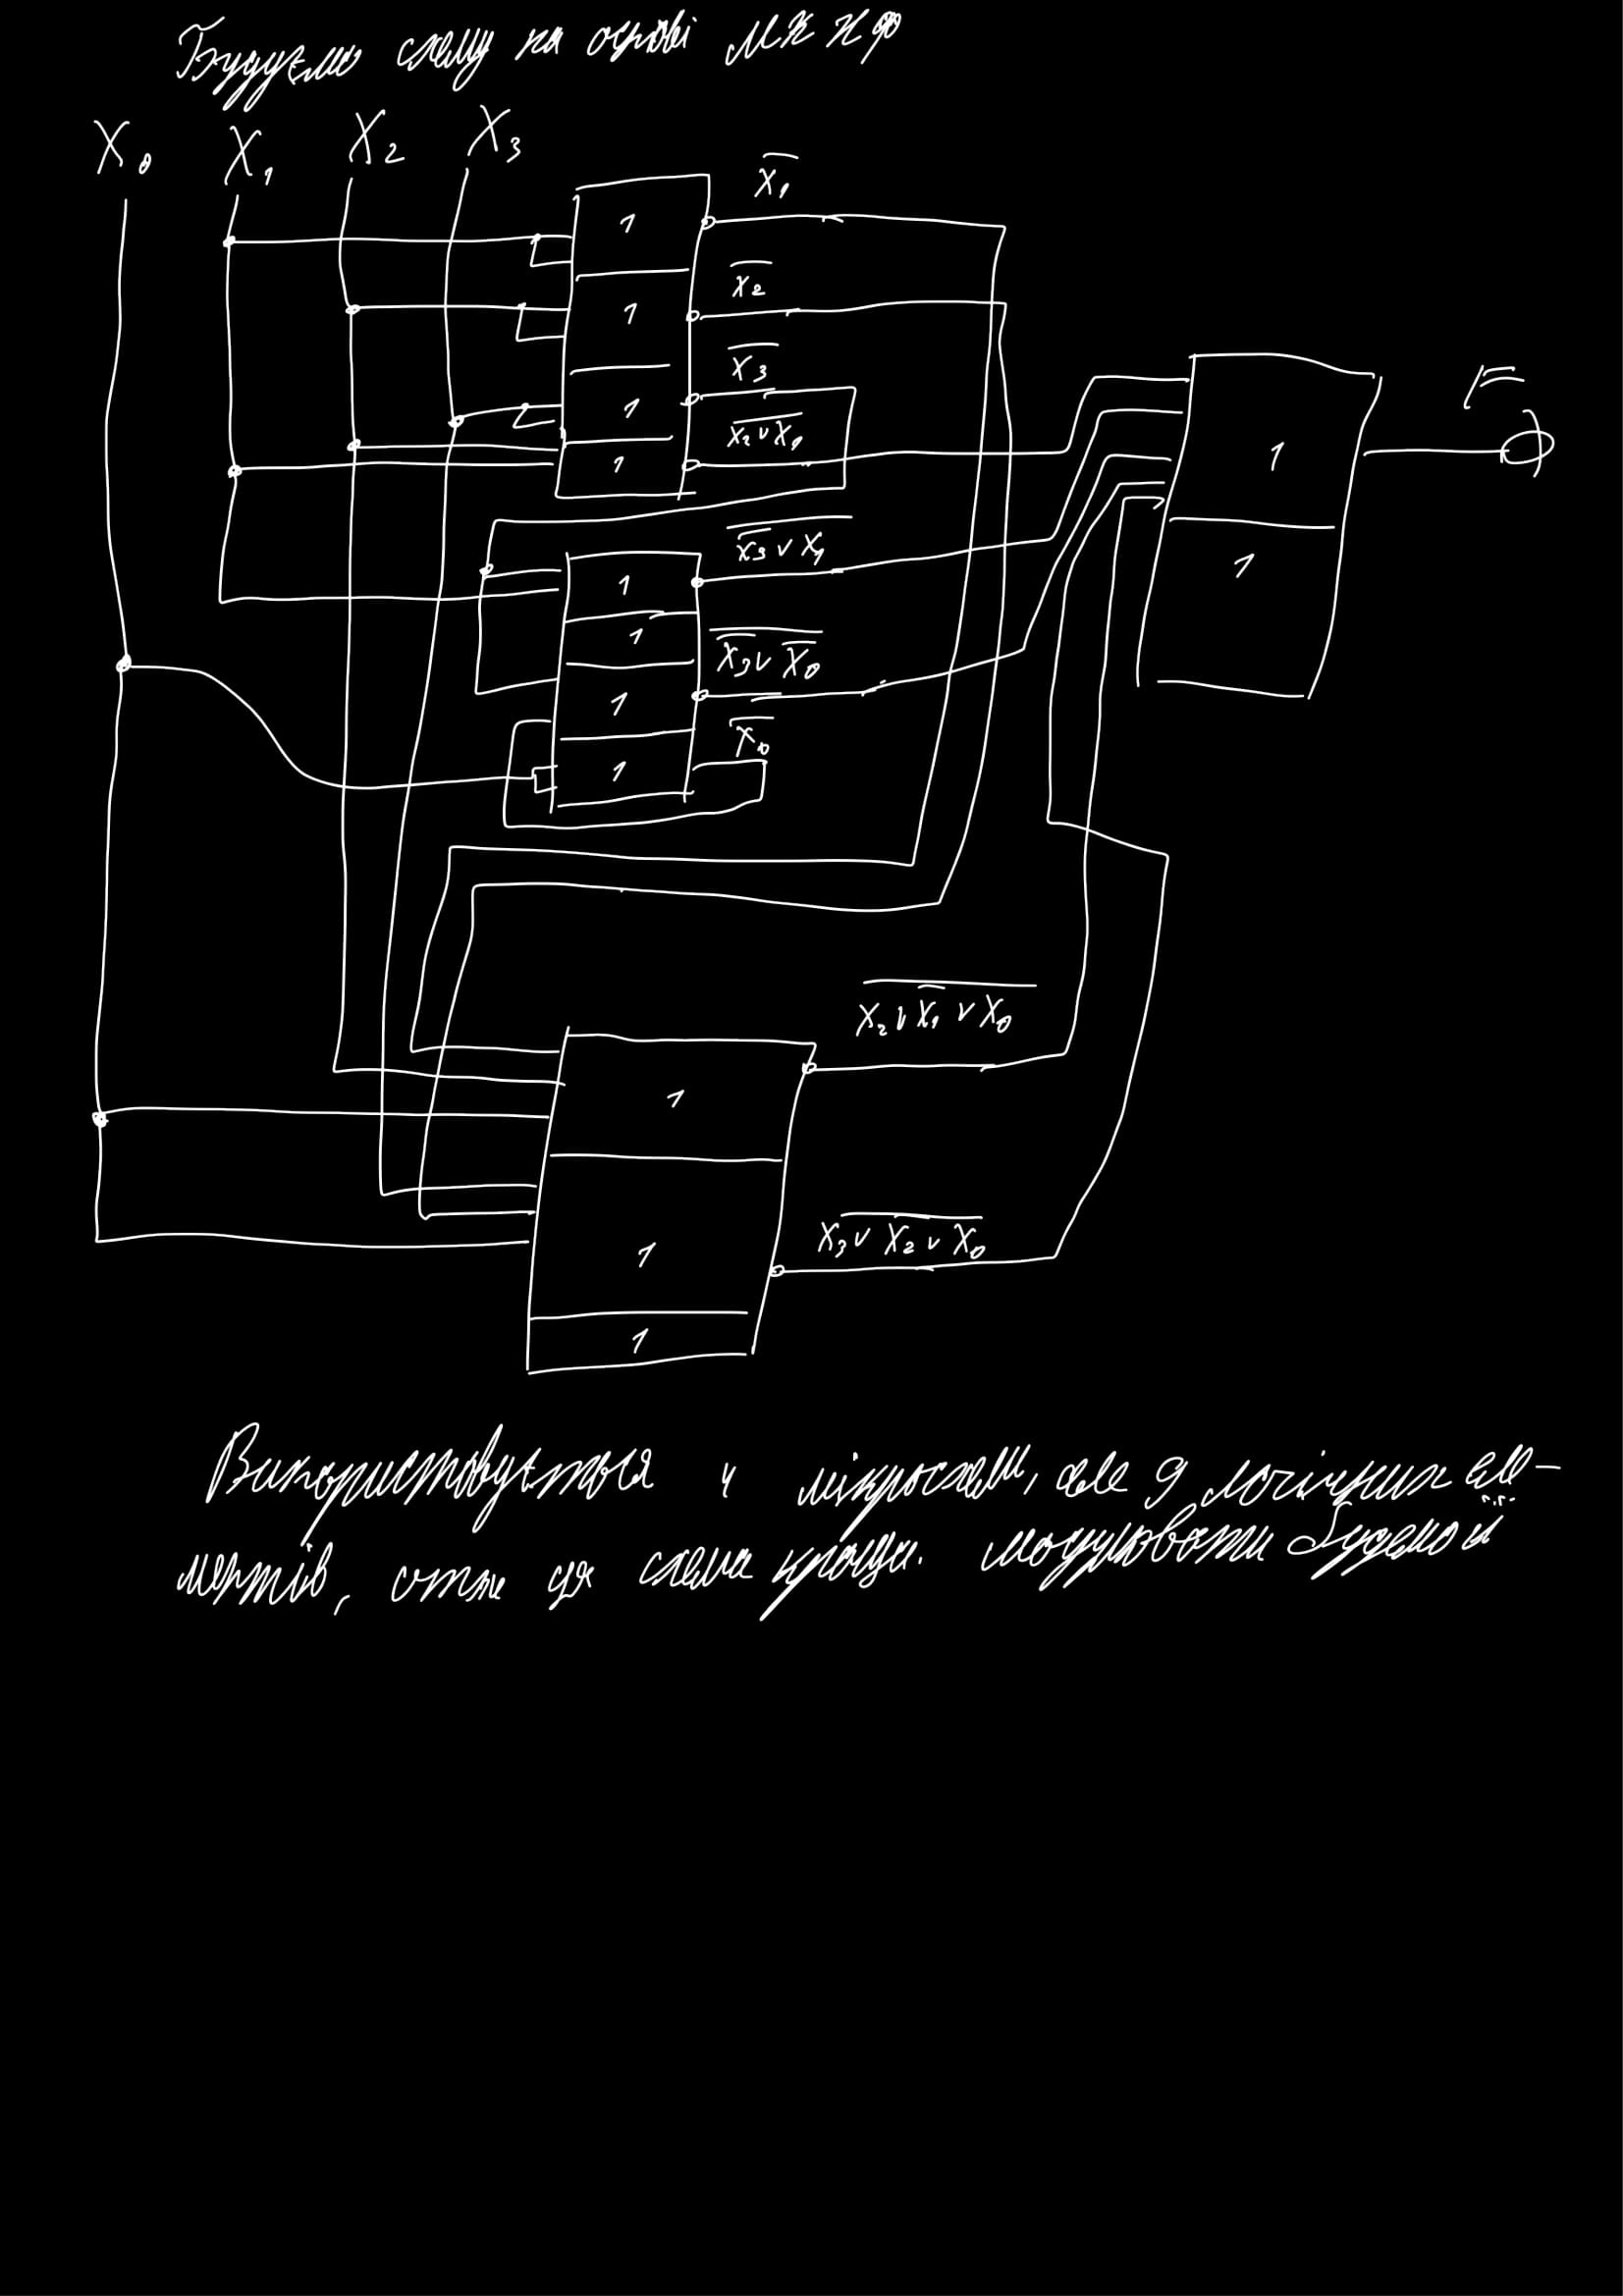 Будуємо схему на основі МКНФ
X₀ X₁ X₂ X₃
1 X̅₁
1 X̅₂
1 X̅₃
1 X₂ v X₁
1 X̅₃ v X₁
1
1 X̅₃ v X̅₀
1 X̅₀
1
1
X₂ v X̅₁ v X₀
1
X₃ v X̅₂ v X₀
1
1
Використовується 4 мікросхеми, але 9 логічних еле-
ментів, отже ця схема краща. Модулювати будемо її